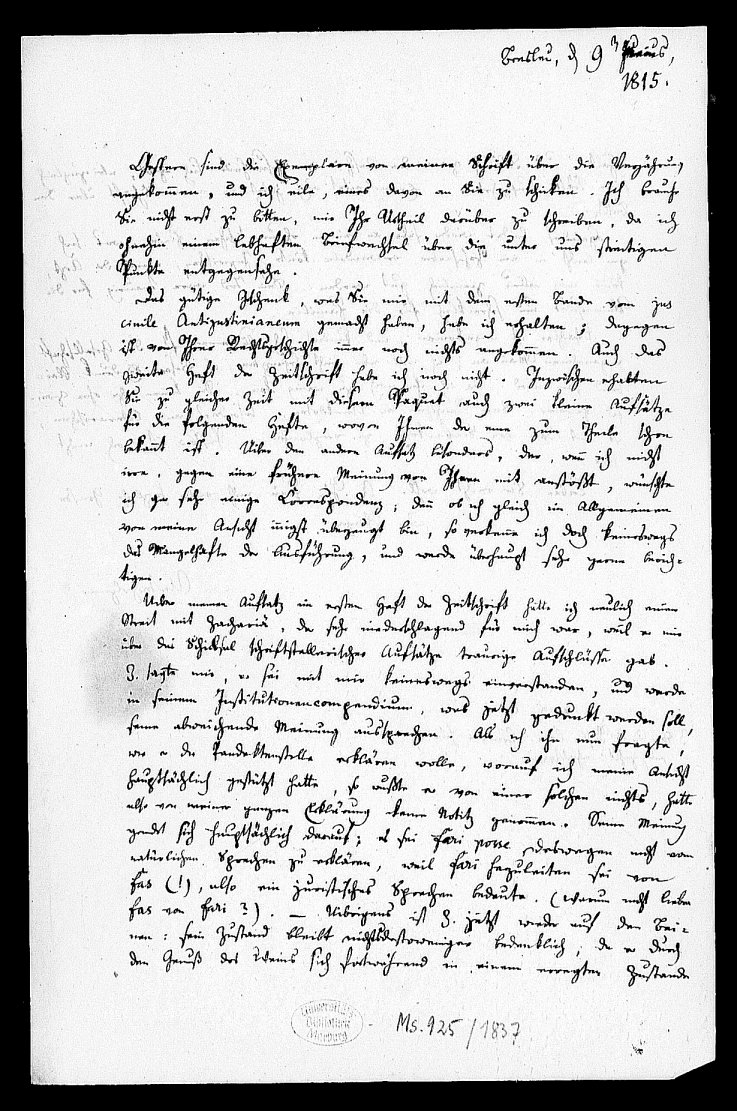 Breslau, d 9
1815.
Gestern sind die Exemplare von meiner Schrift über die Verjährung
angekommen, und ich eile, eines davon an Sie zu schicken. Ich brauche
Sie nicht erst zu bitten, mir Ihr Urtheil darüber zu schreiben, da ich
ohnehin einem lebhaften Briefwechsel über die unter uns streitigen
Punkte entgegensehe.
Das gütige Geschenk, was Sie mir mit dem ersten Bande vom jus
civile Antejustinianeum gemacht haben, habe ich erhalten; dagegen
ist von Ihrer Rechtsgeschichte immer noch nichts angekommen. Auch das
zweite Heft der Zeitschrift habe ich noch nicht. Inzwischen erhalten
Sie zu gleicher Zeit mit diesem Paquet auch zwei kleine Aufsätze
für die folgenden Hefte, wovon Ihnen der eine zum Theile schon
bekannt ist. Ueber den andern Aufsatz besonders, der, wenn ich nicht
irre, gegen eine frühere Meinung von Ihnen mit anstößt, wünschte
ich gar sehr einige Correspondenz; denn ob ich gleich im Allgemeinen
von meiner Ansicht innigst überzeugt bin, so verkenne ich doch keineswegs
das Mangelhafte der Ausführung, und werde überhaupt sehr gerne berich-
tigen.
Ueber meinen Aufsatz im ersten Heft der Zeitschrift hatte ich neulich einen
Streit mit Zachariä, der sehr niederschlagend für mich war, weil er mir
über das Schicksal schriftstellerischer Aufsätze traurige Aufschlüsse gab.
Z. sagte mir, er sei mit mir keineswegs einverstanden, und werde
in seinem Institutionencompendium, was jetzt gedruckt werden soll,
seine abweichende Meinung aussprechen. Als ich ihn nun fragte,
wie er die Pandektenstelle erklären wolle, worauf ich meine Ansicht
hauptsächlich gestützt hatte, so wußte er von einer solchen nichts, hatte
also von meiner ganzen Erklärung keine Notitz genommen. Seine Meinung
gründet sich hauptsächlich darauf; es sei fari posse deswegen nicht vom
natürlichen Sprechen zu erklären, weil fari herzuleiten sei von
fas (!), also ein juristisches Sprechen bedeute. (Warum nicht lieber
fas von fari?). — Uibrigens ist Z. jetzt wieder auf den Bei-
nen: sein Zustand bleibt nichtsdestoweniger bedenklich, da er durch
den Genuß des Weins sich fortwährend in einem erregten Zustande
Universitäts
Bibliothek
Marburg
Ms. 925/1837